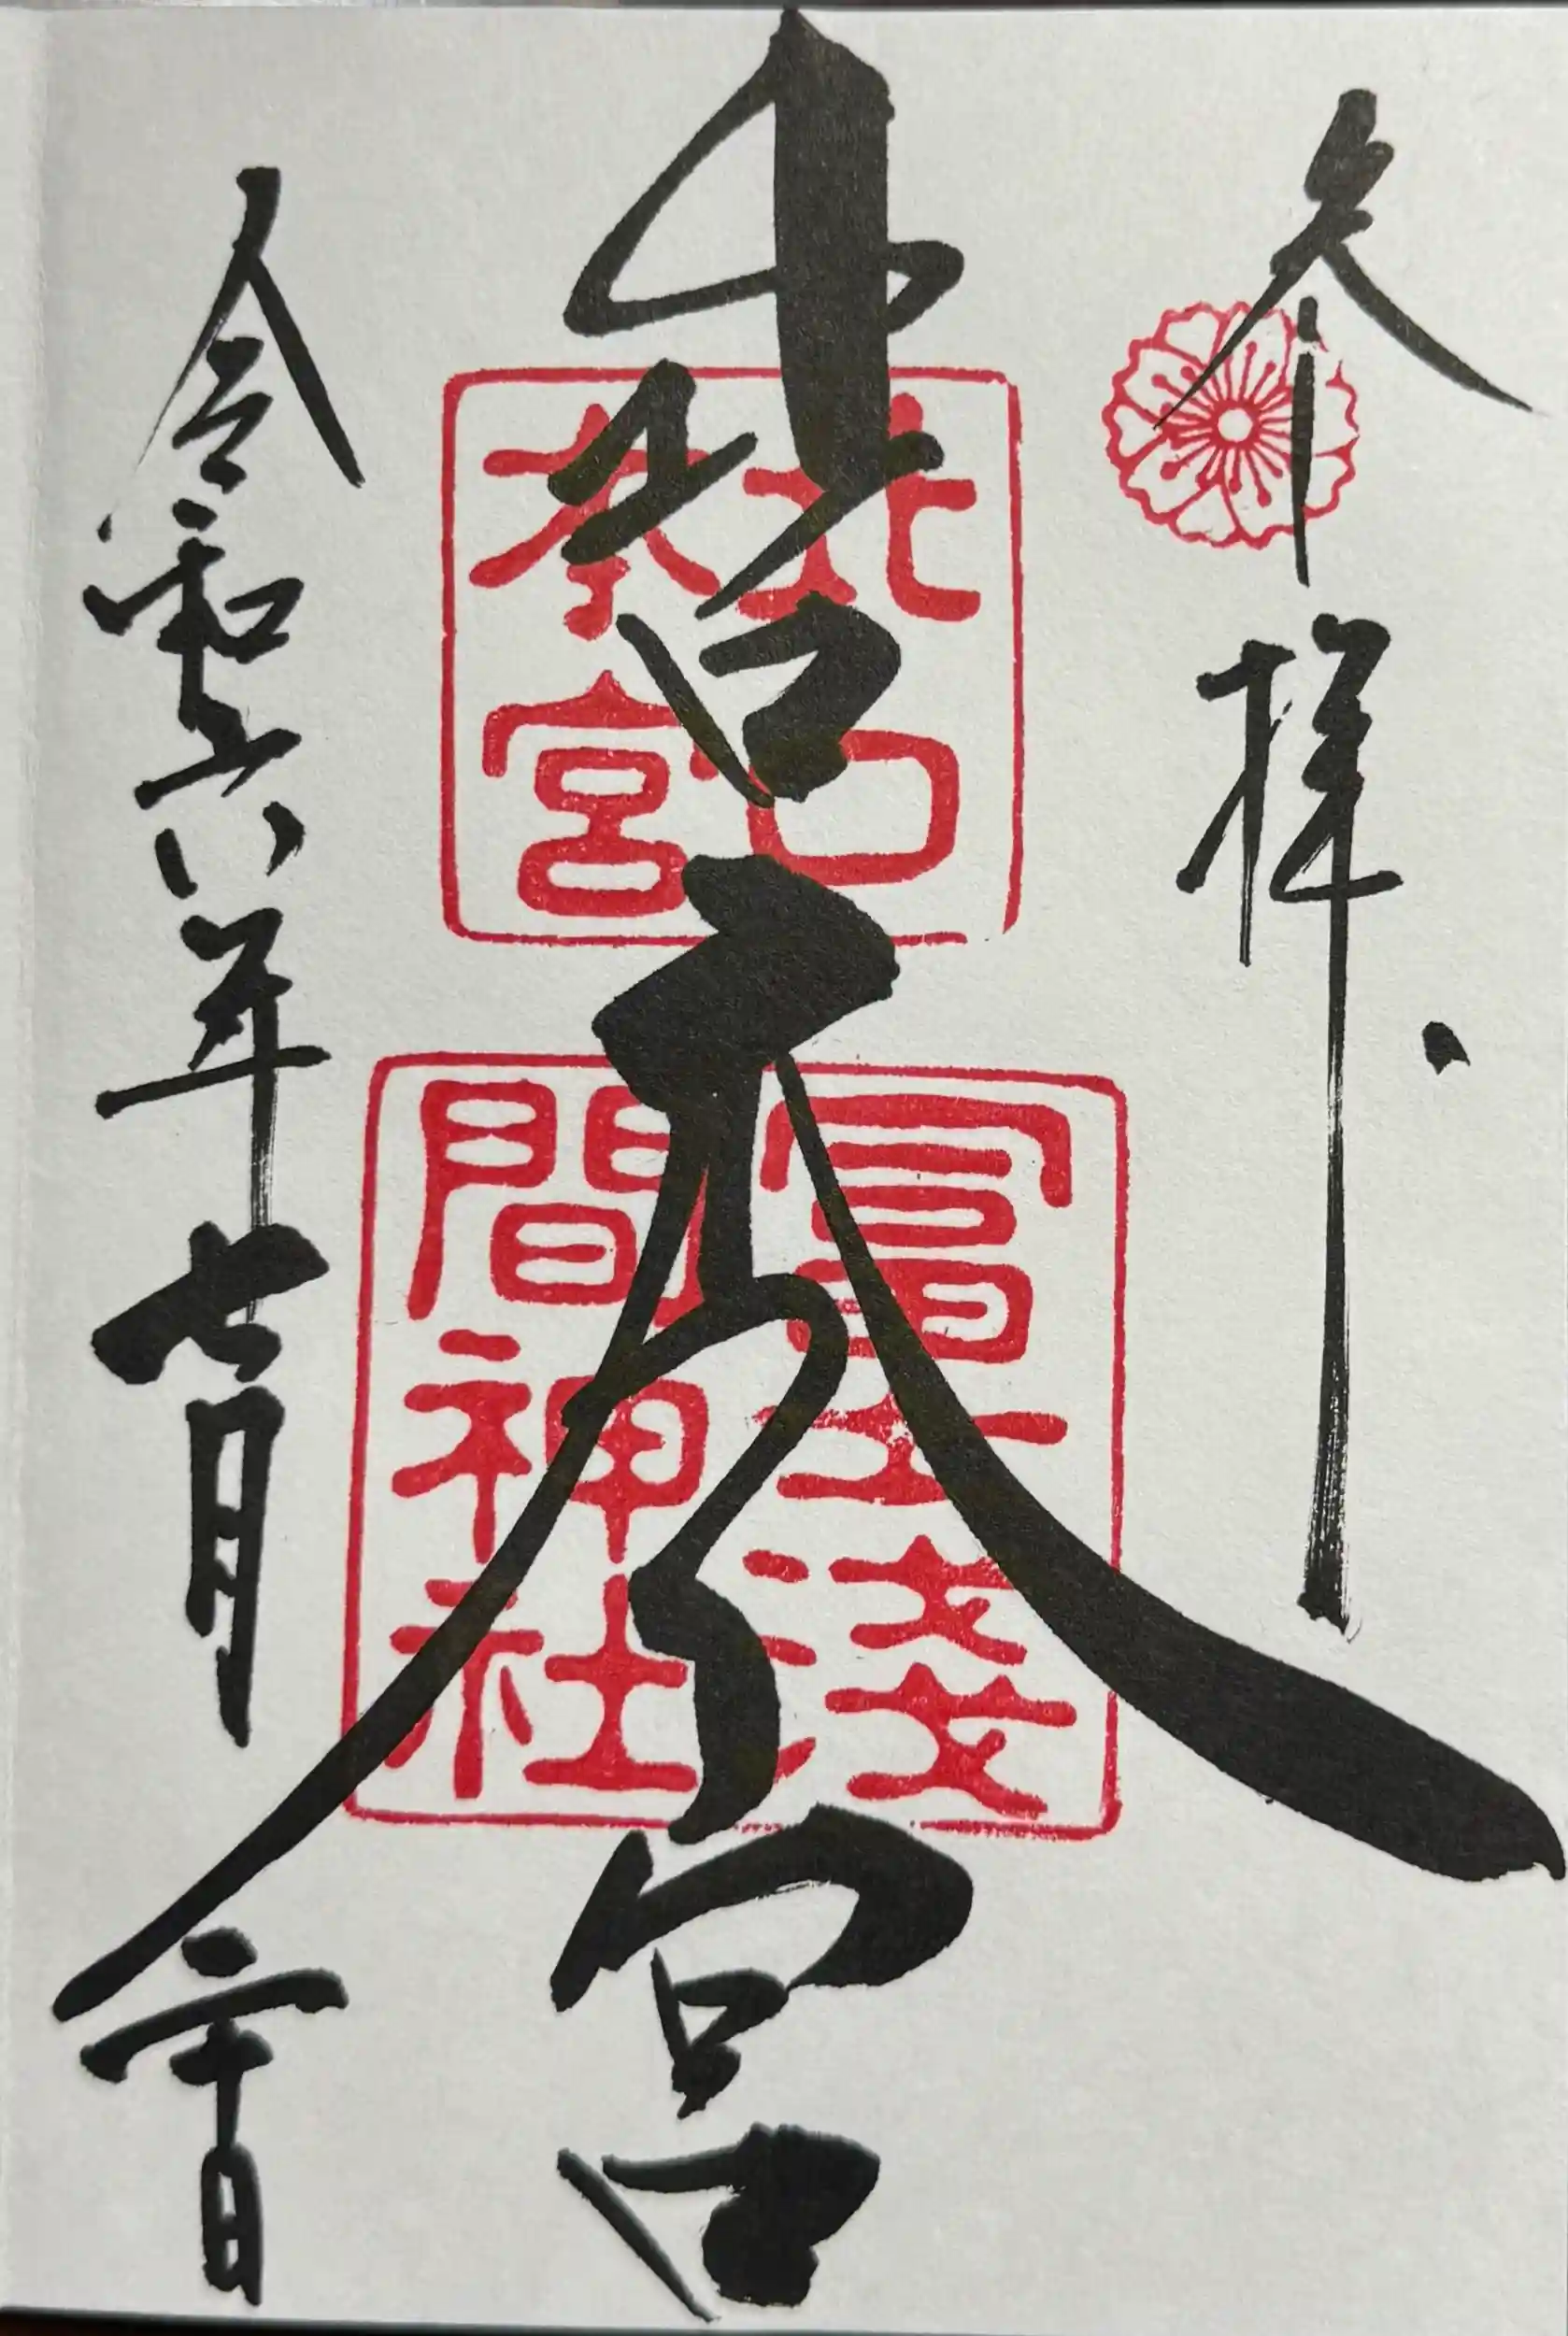 奉拝
北口本宮
令和六年七月二十日
北口
本宮
冨士淺
間神社